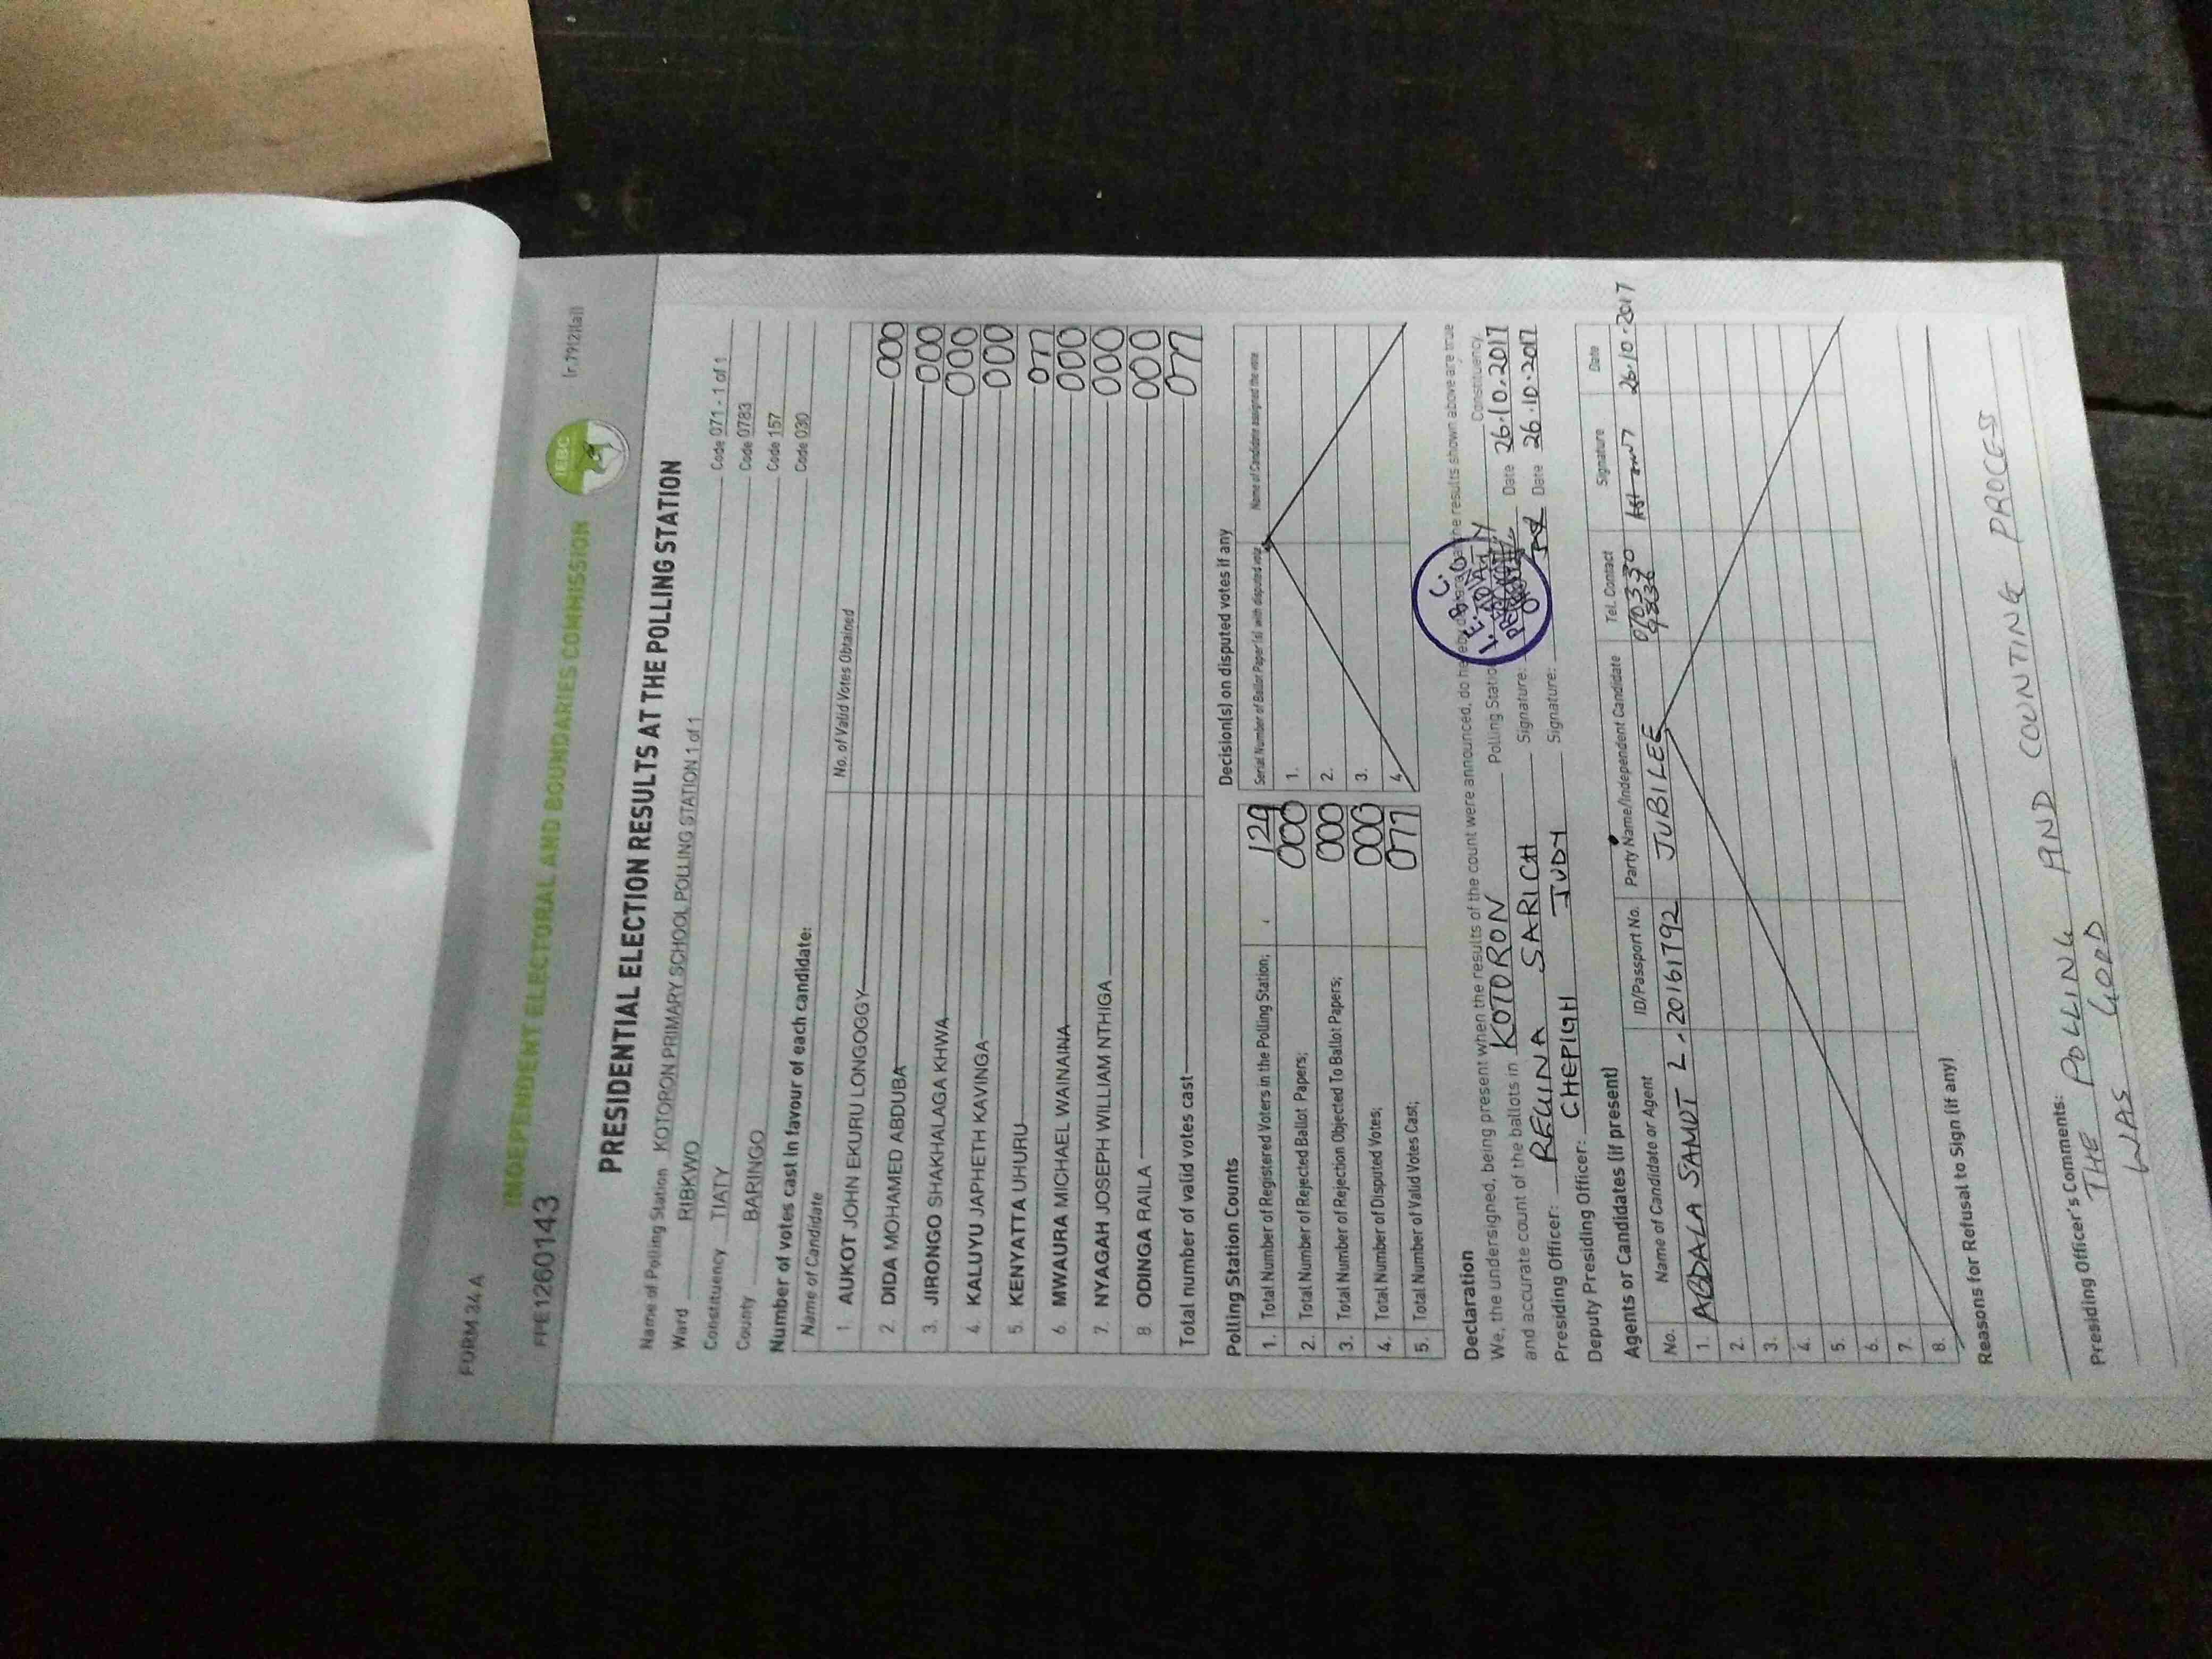 FORM 34 A
INDEPENDENT ELECTORAL AND BOUNDARIES COMMISSION
IEBC
(r.79(2)(a))
PFE1260143
PRESIDENTIAL ELECTION RESULTS AT THE POLLING STATION
Name of Polling Station KOTORON PRIMARY SCHOOL POLLING STATION 1 of 1 Code 071 - 1 of 1
Ward RIBKWO Code 0783
Constituency TIATY Code 157
County BARINGO Code 030
Number of votes cast in favour of each candidate:
Name of Candidate No. of Valid Votes Obtained
1. AUKOT JOHN EKURU LONGOGGY 000
2. DIDA MOHAMED ABDUBA 000
3. JIRONGO SHAKHALAGA KHWA 000
4. KALUYU JAPHETH KAVINGA 000
5. KENYATTA UHURU 077
6. MWAURA MICHAEL WAINAINA 000
7. NYAGAH JOSEPH WILLIAM NTHIGA 000
8. ODINGA RAILA 000
Total number of valid votes cast 077
Polling Station Counts
1. Total Number of Registered Voters in the Polling Station; 129
2. Total Number of Rejected Ballot Papers; 000
3. Total Number of Rejection Objected To Ballot Papers; 000
4. Total Number of Disputed Votes; 000
5. Total Number of Valid Votes Cast; 077
Decision(s) on disputed votes if any
Serial Number of Ballot Paper(s) with disputed vote Name of Candidate assigned the vote
1.
2.
3.
4.
Declaration
We, the undersigned, being present when the results of the count were announced, do hereby the results shown above are true
and accurate count of the ballots in KOTORON Polling Station Constituency.
Presiding Officer: REGINA SARICH Signature: Date 26.10.2017
Deputy Presiding Officer: CHEPIGH JUDY Signature: Date 26.10.2017
I.E.B.C.
Agents or Candidates (if present)
No. Name of Candidate or Agent ID/Passport No. Party Name/Independent Candidate Tel. Contact Signature Date
1. ABDALA SAMUT L. 20161792 JUBILEE 26.10.2017
2.
3.
4.
5.
6.
7.
8.
Reasons for Refusal to Sign (if any)
Presiding Officer's Comments:
THE POLLING AND COUNTING PROCESS
WAS GOOD